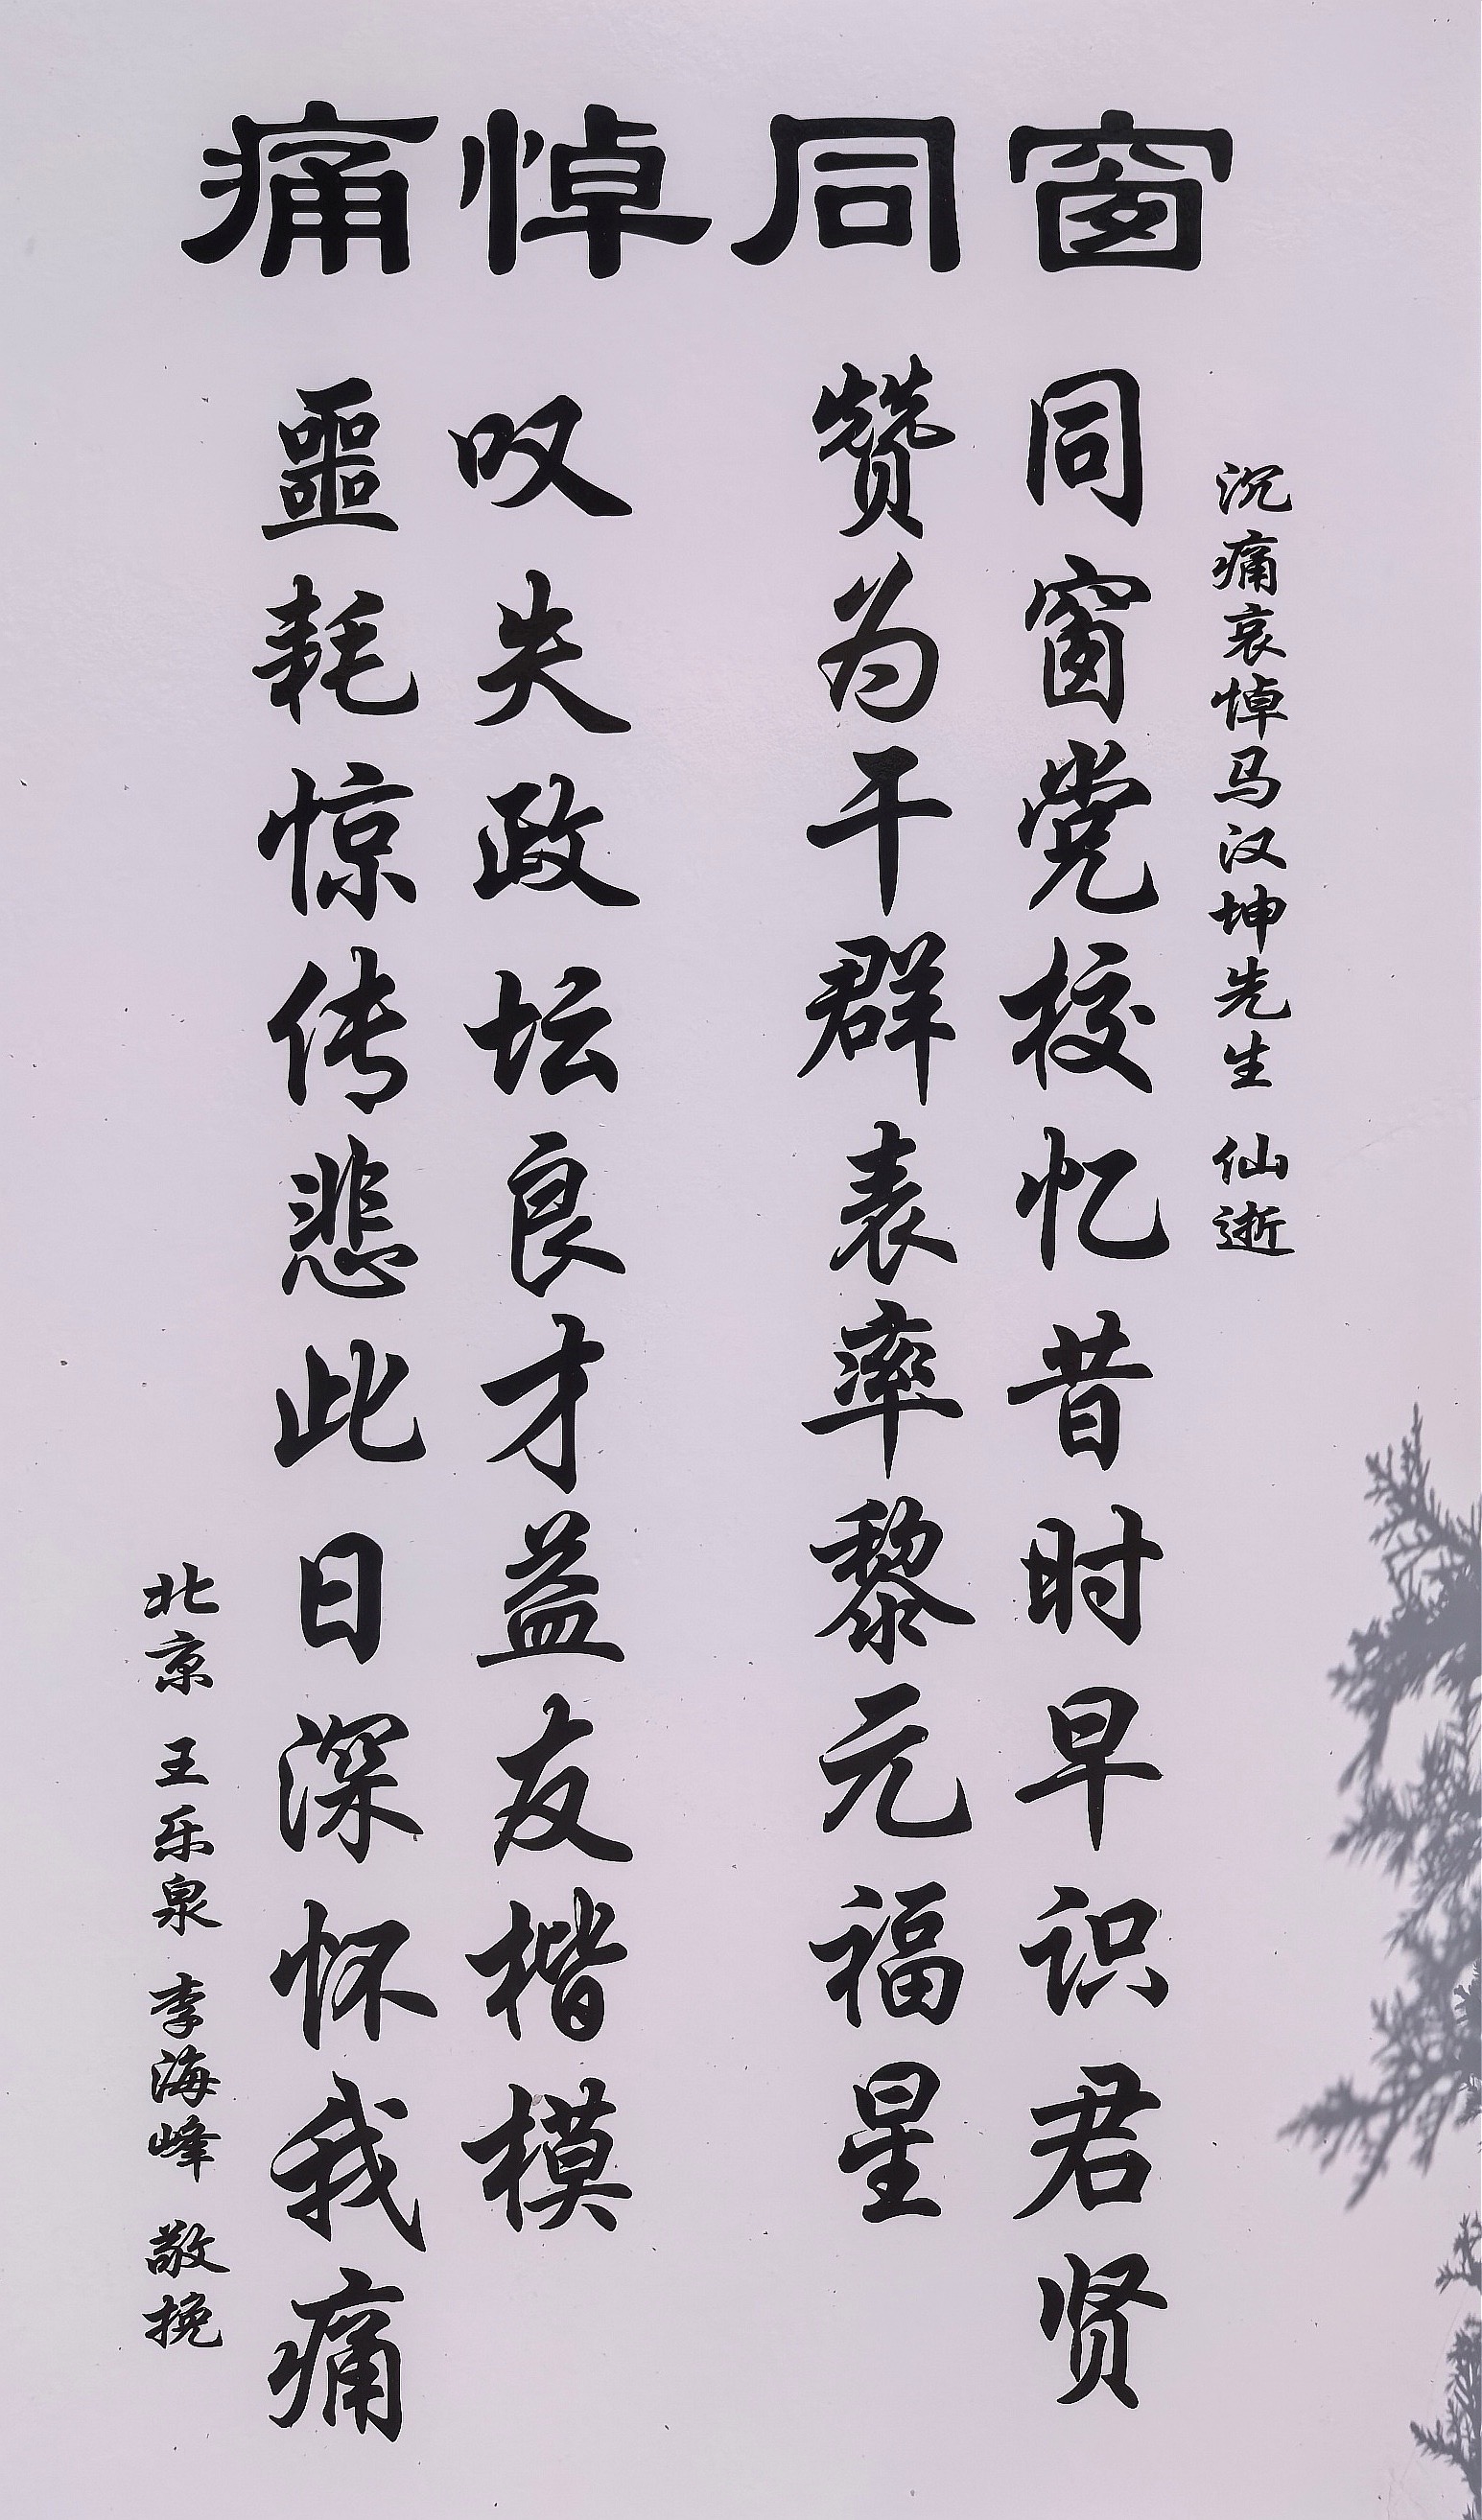 窗同悼痛
沉痛哀悼马汉坤先生 仙逝
同窗党校忆昔时早识君贤
赞为干群表率黎元福星
叹失政坛良才益友楷模
噩耗惊传悲此日深怀我痛
北京 王乐泉 李海峰 敬挽